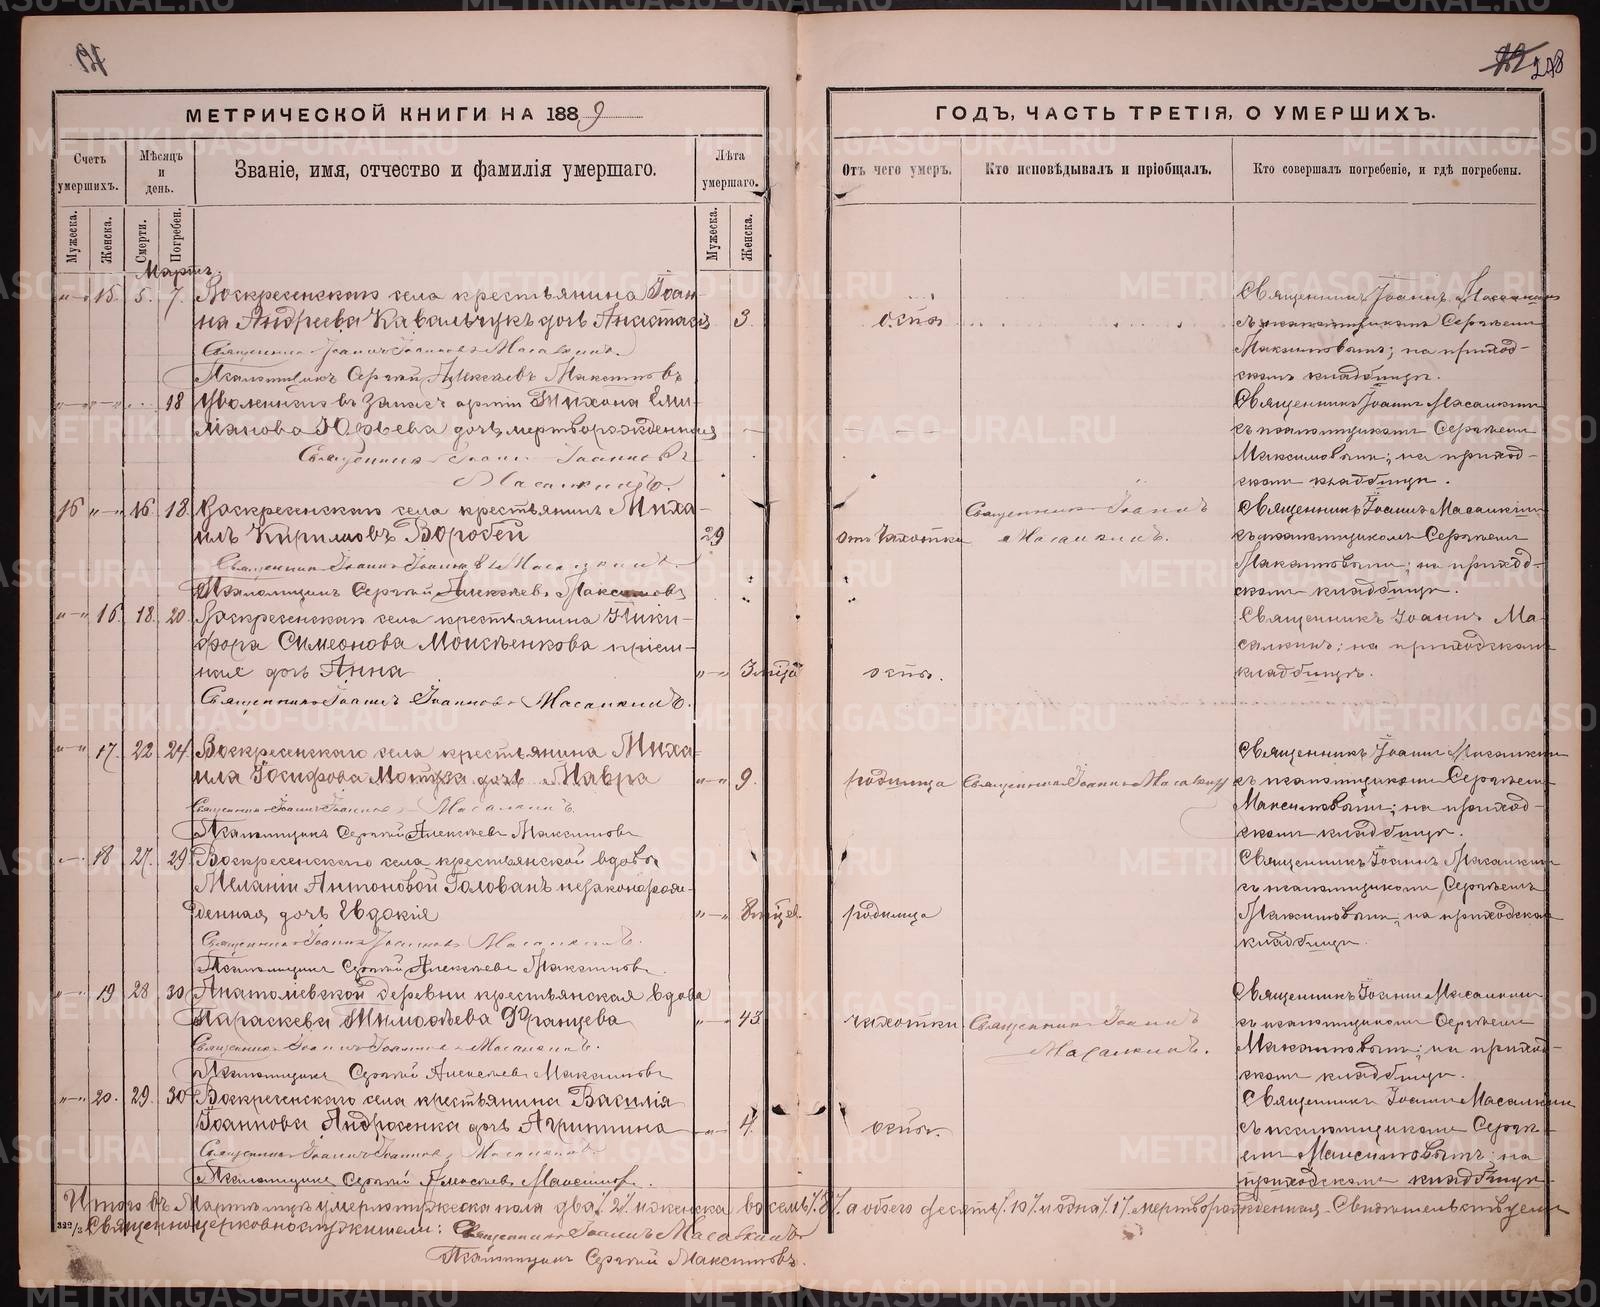 278
МЕТРИЧЕСКОЙ КНИГИ НА 1889
ГОДЪ, ЧАСТЬ ТРЕТІЯ, О УМЕРШИХЪ.
Счетъ умершихъ.
Мужеска.
Женска.
Мѣсяцъ и день.
Смерти.
Погребен.
Званіе, имя, отчество и фамилія умершаго.
Лѣта умершаго.
Мужеска.
Женска.
Отъ чего умеръ.
Кто исповѣдывалъ и пріобщалъ.
Кто совершалъ погребеніе, и гдѣ погребены.
Мартъ.
15. 5. 7. Воскресенскаго села крестьянина Іоан-
на Андреева Ковальчукъ дочь Анастасія 3. оспы
Священникъ Іоаннъ Іоанновъ Масалкинъ.
Псаломщикъ Сергѣй Алексѣевъ Максимовъ
Священникъ Іоаннъ Масалкинъ
съ псаломщикомъ Сергѣемъ
Максимовымъ; на приход-
скомъ кладбищѣ.
18 Уволеннаго въ запасъ арміи Тихона Еми-
ліанова Юрьева дочь мертворожденная
Священникъ Іоаннъ Іоанновъ
Масалкинъ.
Священникъ Іоаннъ Масалкинъ
съ псаломщикомъ Сергѣемъ
Максимовымъ; на приход-
скомъ кладбищѣ.
16 16. 18. Воскресенскаго села крестьянинъ Миха-
илъ Кирилловъ Воробей 29 отъ чахотки
Священникъ Іоаннъ Іоанновъ Масалкинъ.
Псаломщикъ Сергѣй Алексѣевъ Максимовъ
Священникъ Іоаннъ
Масалкинъ.
Священникъ Іоаннъ Масалкинъ
съ псаломщикомъ Сергѣемъ
Максимовымъ; на приход-
скомъ кладбищѣ.
16. 18. 20. Воскресенскаго села крестьянина Ники-
фора Симеонова Моисѣенкова пріем-
ная дочь Анна 3 мѣся оспы.
Священникъ Іоаннъ Іоанновъ Масалкинъ.
Священникъ Іоаннъ Ма-
салкинъ; на приходскомъ
кладбищѣ.
17. 22 24 Воскресенскаго села крестьянина Миха-
ила Іосифова дочь Мавра 9. родимца
Священникъ Іоаннъ Іоанновъ Масалкинъ
Псаломщикъ Сергѣй Алексѣевъ Максимовъ
Священникъ Іоаннъ Масалкинъ
Священникъ Іоаннъ Масалкинъ
съ псаломщикомъ Сергѣемъ
Максимовымъ; на приход-
скомъ кладбищѣ.
18 27. 29 Воскресенскаго села крестьянской вдовы
Меланіи Антоновой Голованъ незаконорож-
денная дочь Евдокія 8 мѣсяцев. родимца
Священникъ Іоаннъ Іоанновъ Масалкинъ.
Псаломщикъ Сергѣй Алексѣевъ Максимовъ.
Священникъ Іоаннъ Масалкинъ
съ псаломщикомъ Сергѣемъ
Максимовымъ, на приходскомъ
кладбищѣ.
19 28 30 Анатоліевской деревни крестьянская вдова
Параскева Тимофѣева Францева 43 чахотки
Священникъ Іоаннъ Іоанновъ Масалкинъ.
Псаломщикъ Сергѣй Алексѣевъ Максимовъ
Священникъ Іоаннъ
Масалкинъ.
Священникъ Іоаннъ Масалкинъ
съ псаломщикомъ Сергѣемъ
Максимовымъ; на приход-
скомъ кладбищѣ.
20. 29. 30 Воскресенскаго села крестьянина Василія
Іоаннова Андросенка дочь Агриппина 4. оспы.
Священникъ Іоаннъ Іоанновъ Масалкинъ
Псаломщикъ Сергѣй Алексѣевъ Максимов.
Священникъ Іоаннъ Масалкинъ
съ псаломщикомъ Сергѣ-
емъ Максимовымъ; на
приходскомъ кладбищѣ.
Итого въ Мартѣ мцѣ умерло мужеска пола два /2/ и женска восемь /8/, а обоего десять /10/ и одна /1/ мертворожденная. Свидѣтельствуемъ
Священноцерковнослужители: Священникъ Іоаннъ Масалкинъ
Псаломщикъ Сергѣй Максимовъ.
METRIKI.GASO-URAL.RU